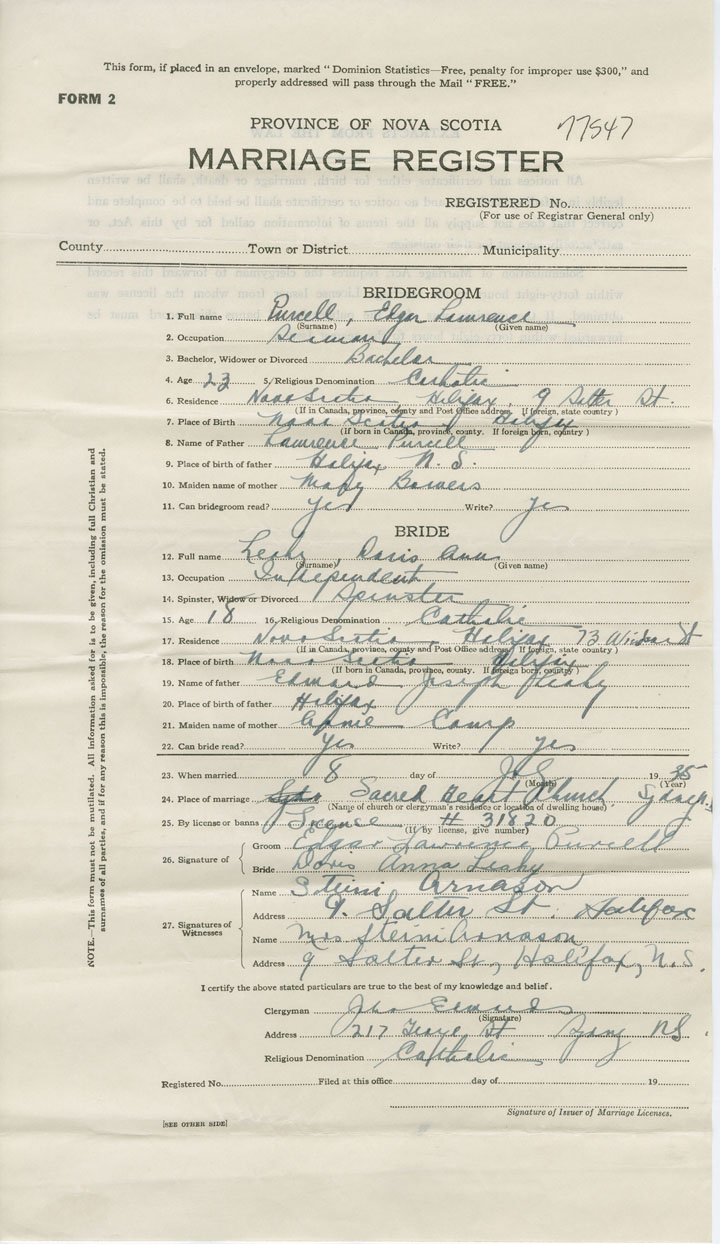 This form, if placed in an envelope, marked "Dominion Statistics—Free, penalty for improper use $300," and
properly addressed will pass through the Mail "FREE."
FORM 2
PROVINCE OF NOVA SCOTIA 77547
MARRIAGE REGISTER
REGISTERED No.
(For use of Registrar General only)
County Town or District Municipality
BRIDEGROOM
1. Full name Purcell, Edgar Lawrence
(Surname) (Given name)
2. Occupation Seaman
3. Bachelor, Widower or Divorced Bachelor
4. Age 23 5. Religious Denomination Catholic
6. Residence Nova Scotia, Halifax, 9 Salter St.
(If in Canada, province, county and Post Office address. If foreign, state country)
7. Place of Birth Nova Scotia Halifax
(If born in Canada, province, county. If foreign born, country)
8. Name of Father Lawrence Purcell
9. Place of birth of father Halifax N.S.
10. Maiden name of mother Mary Bowers
11. Can bridegroom read? Yes Write? Yes
BRIDE
12. Full name Leahy, Doris Ann
(Surname) (Given name)
13. Occupation Independent
14. Spinster, Widow or Divorced Spinster
15. Age 18 16. Religious Denomination Catholic
17. Residence Nova Scotia, Halifax 73 Windsor St
(If in Canada, province, county and Post Office address. If foreign, state country)
18. Place of birth Nova Scotia Halifax
(If born in Canada, province, county. If foreign born, country)
19. Name of father Edward Joseph Leahy
20. Place of birth of father Halifax
21. Maiden name of mother Camp
22. Can bride read? Yes Write? Yes
23. When married 8 day of 1935
(Month) (Year)
24. Place of marriage Sacred Heart Church Sydney
(Name of church or clergyman's residence or location of dwelling house)
25. By license or banns License # 31820
(If by license, give number)
26. Signature of
Groom Edgar Lawrence Purcell
Bride Doris Anna Leahy
27. Signatures of Witnesses
Name Steini Arnason
Address 9. Salter St. Halifax
Name Mrs Steini Arnason
Address 9 Salter St, Halifax, N.S.
I certify the above stated particulars are true to the best of my knowledge and belief.
Clergyman
(Signature)
Address 217 George St NS
Religious Denomination Catholic
Registered No. Filed at this office day of 19
Signature of Issuer of Marriage Licenses.
[SEE OTHER SIDE]
NOTE.—This form must not be mutilated. All information asked for is to be given, including full Christian and
surnames of all parties, and if for any reason this is impossible, the reason for the omission must be stated.